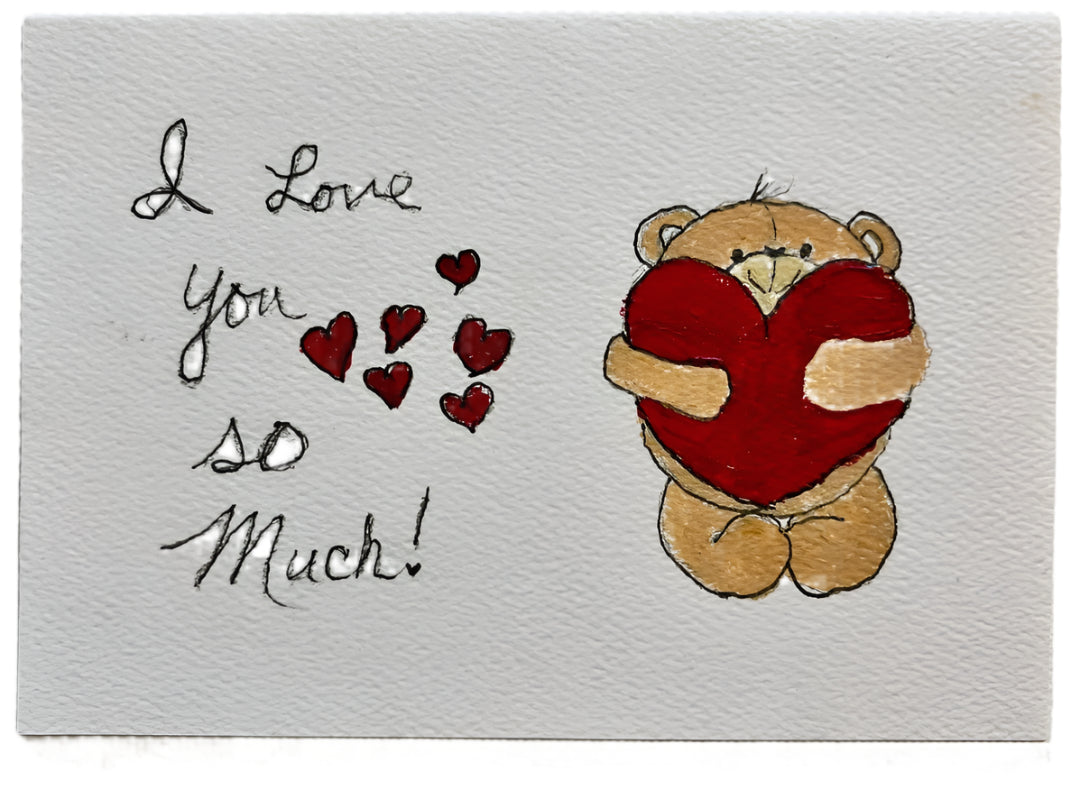 I Love
you
so
Much!